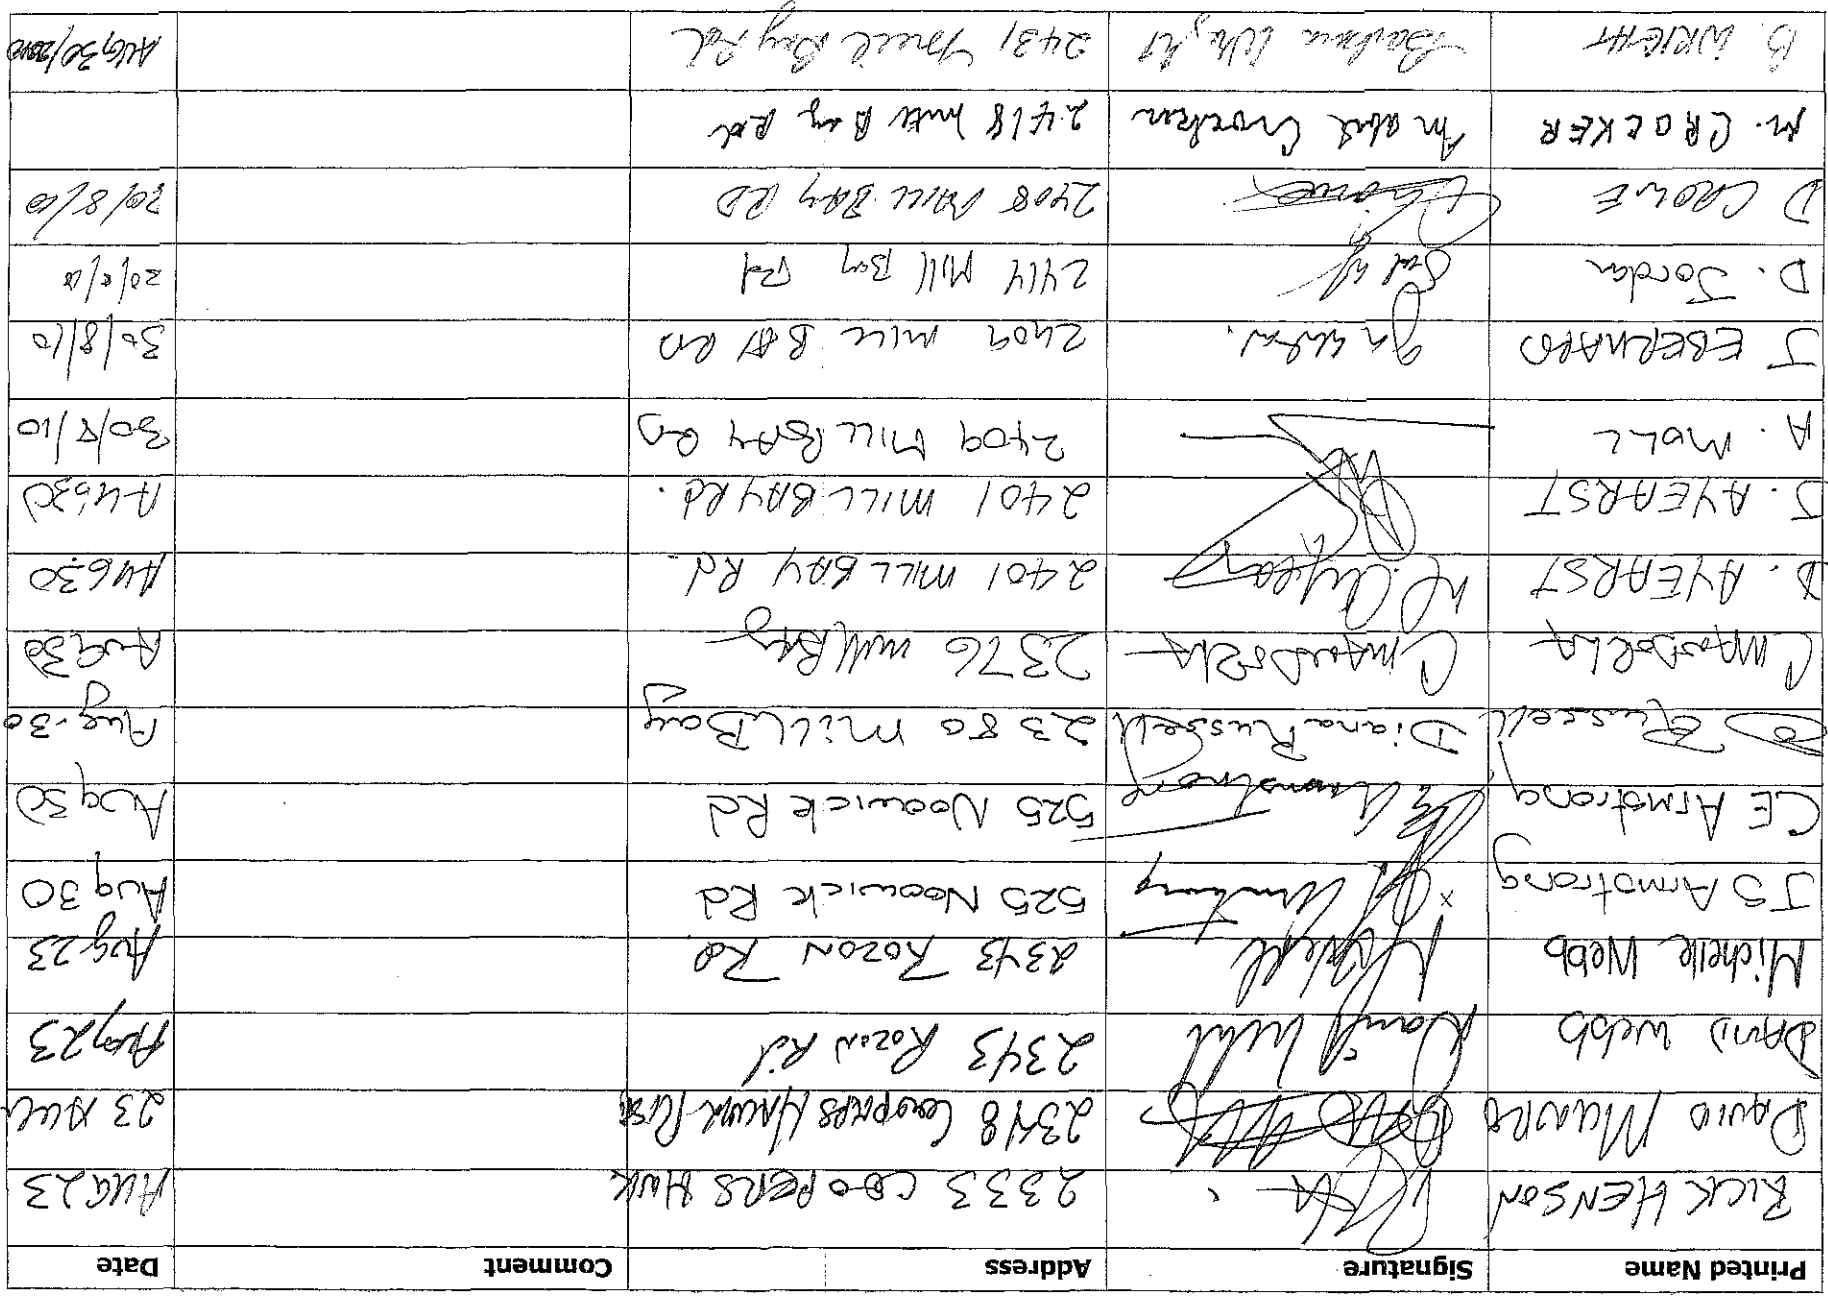 Printed Name Signature Address Comment Date
RICK HENSON 2333 COOPERS HAWK AUG 23
DAVID MUNRO 2348 COOPERS HAWK RISE 23 AUG
DAVID Webb David Webb 2343 Rozon Rd Aug 23
Michelle Webb 2343 ROZON RD Aug 23
JS Armstrong x 525 Noowick Rd Aug 30
CE Armstrong CE Armstrong 525 Noowick Rd Aug 30
D Russell Diana Russell 2380 Mill Bay Aug. 30
2376 Mill Bay Aug 30
D. AYEARST 2401 MILL BAY Rd. AUG 30
J. AYEARST 2401 MILL BAY Rd. AUG 30
A. MOLL 2409 MILL BAY RD 30/8/10
J EBERHARD 2409 MILL BAY RD 30/8/10
D. Jordan 2414 Mill Bay Rd
D CROWE 2408 MILL BAY RD 30/8/10
M. CROCKER Mabel Crocker 2418 Mill Bay Rd
B. WRIGHT Barbara Wright 2431 Mill Bay Rd AUG 30/2010